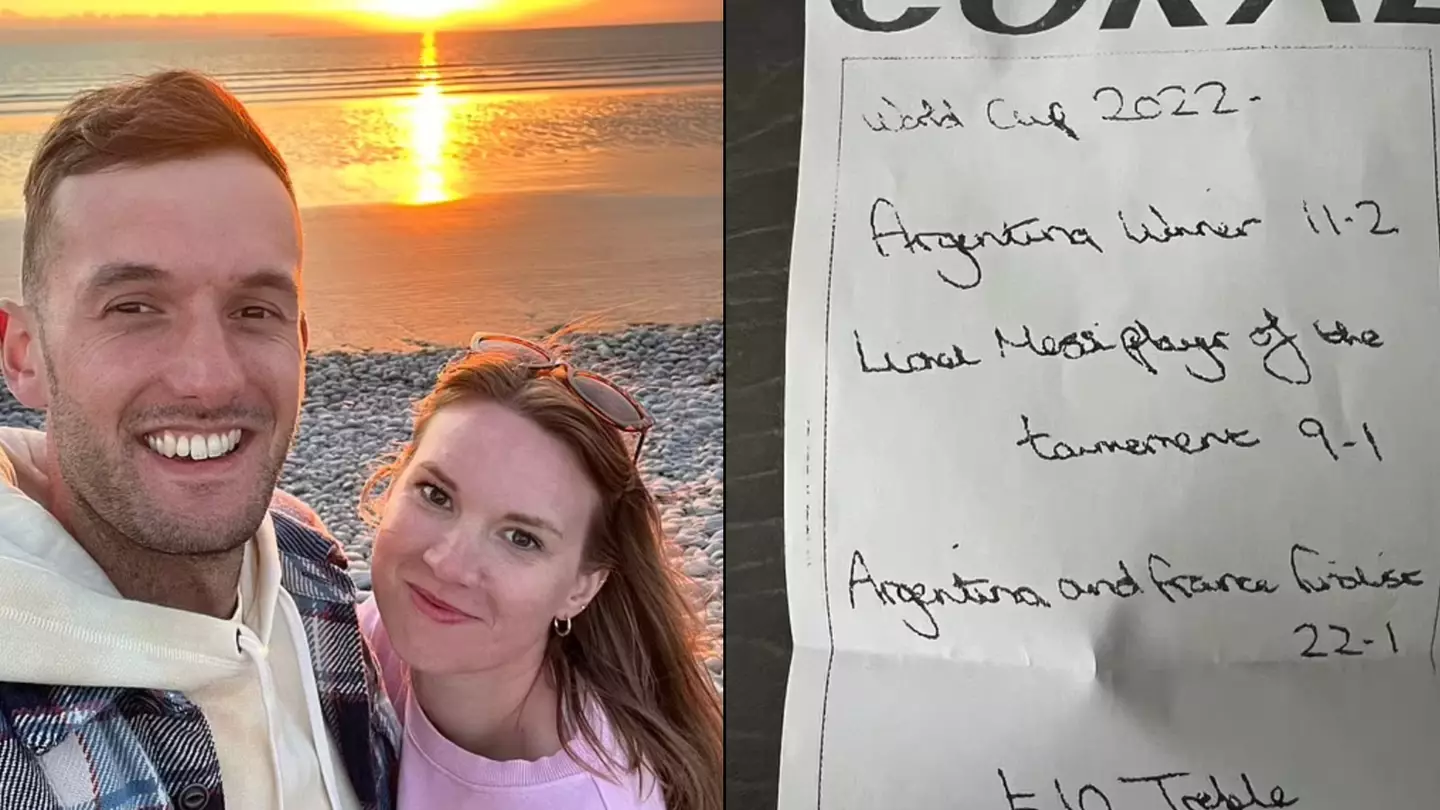 CORAL
World Cup 2022-
Argentina Winner 11-2
Lional Messi player of the
tournement 9-1
Argentina and France finalist
22-1
£10 Treble